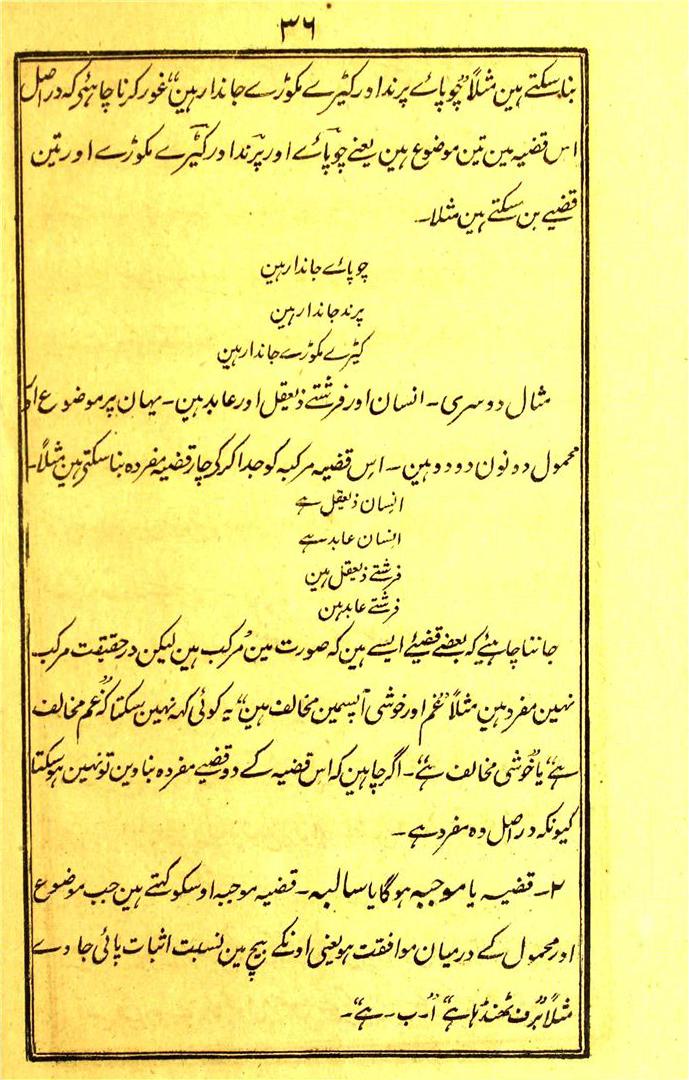 ۳۶
بنا سکتے ہین مثلاً ”چوپائے پرند اور کیڑے مکوڑے جاندار ہین“ غور کرنا چاہئی کہ دراصل
اس قضیہ مین تین موضوع ہین یعنے چوپائے اور پرند اور کیڑے مکوڑے اور تین
قضیے بن سکتے ہین مثلا۔
چوپائے جاندار ہین
پرند جاندار ہین
کیڑے مکوڑے جاندار ہین
مثال دوسری۔ انسان اور فرشتے ذیعقل اور عابد ہین۔ یہان پر موضوع اور
محمول دونون دو دو ہین۔ اس قضیہ مرکبہ کو جدا کر کی چار قضیہ مفردہ بنا سکتی ہین مثلاً۔
انسان ذیعقل ہے
انسان عابد ہے
فرشتے ذیعقل ہین
فرشتے عابد ہین
جاننا چاہیئے کہ بعضے قضیئے ایسے ہین کہ صورت مین مرکب ہین لیکن در حقیقت مرکب
نہین مفرد ہین مثلاً ”غم اور خوشی آپسمین مخالف ہین“ یہ کوئی کہہ نہین سکتا کہ ”غم مخالف
ہے“ یا ”خوشی مخالف ہے“۔ اگر چاہین کہ اس قضیہ کے دو قضیے مفردہ بناوین تو نہین ہو سکتا
کیونکہ دراصل وہ مفرد ہے۔
۲۔ قضیہ یا موجبہ ہوگا یا سالبہ۔ قضیہ موجبہ اوسکو کہتے ہین جب موضوع
اور محمول کے درمیان موافقت ہو یعنی اونکے بیچ مین نسبت اثبات پائی جاوے
مثلاً ”برف ٹھنڈہا ہے“ ”ا۔ ب۔ ہے“۔